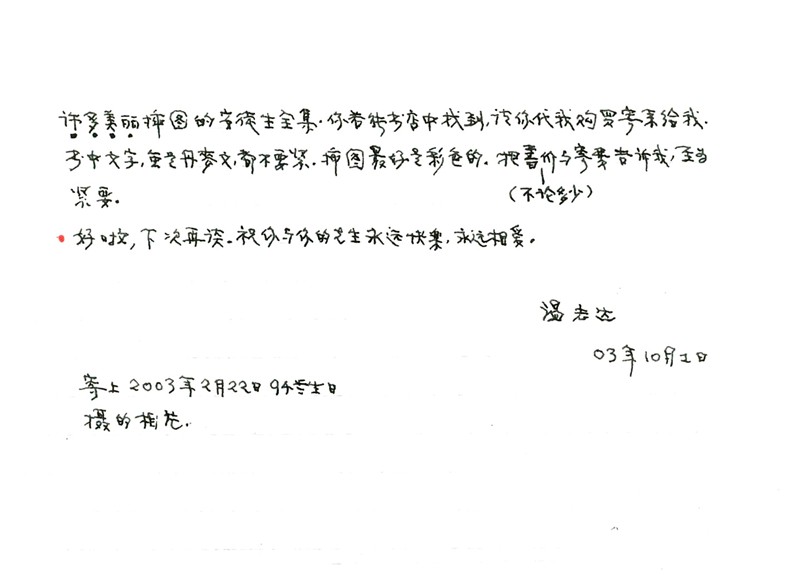 许多美丽插图的安徒生全集.你若能书店中找到,请你代我购买寄来给我.
书中文字,虽是丹麦文,都不要紧.插图最好是彩色的.把書价与寄费告诉我,至为
(不论多少)
紧要.
好啦,下次再谈.祝你与你的先生永远快樂,永远相爱。
温志达
03年10月1日
寄上2003年2月22日94岁生日
摄的相片.